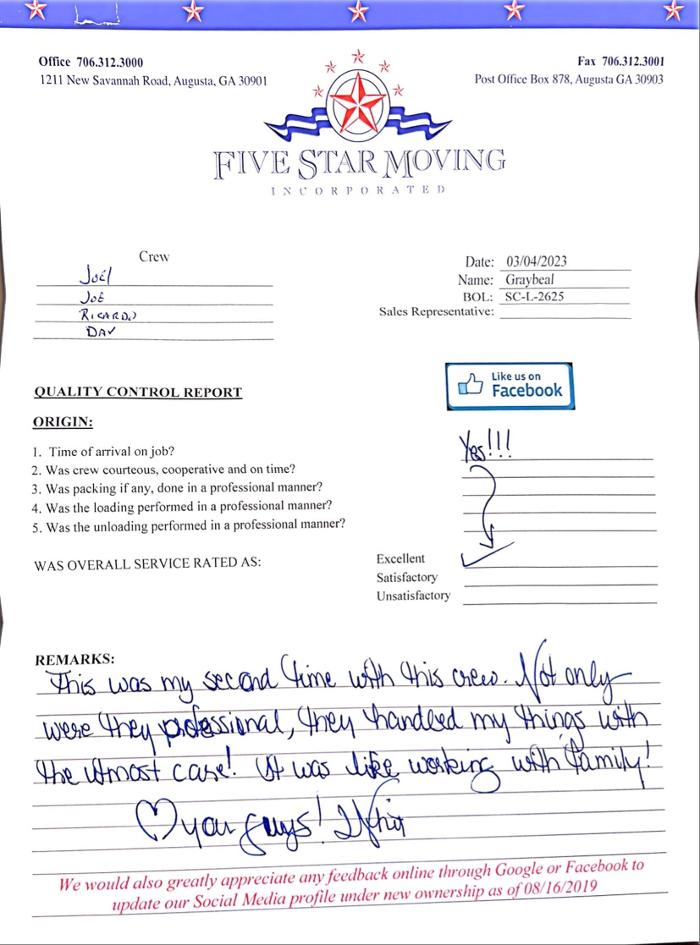 Office 706.312.3000
1211 New Savannah Road, Augusta, GA 30901
Fax 706.312.3001
Post Office Box 878, Augusta GA 30903
FIVE STAR MOVING
INCORPORATED
Crew
Joel
JOE
RICARDO
DAV
Date: 03/04/2023
Name: Graybeal
BOL: SC-L-2625
Sales Representative:
Like us on
Facebook
QUALITY CONTROL REPORT
ORIGIN:
1. Time of arrival on job?
2. Was crew courteous, cooperative and on time?
3. Was packing if any, done in a professional manner?
4. Was the loading performed in a professional manner?
5. Was the unloading performed in a professional manner?
Yes!!!
WAS OVERALL SERVICE RATED AS:
Excellent
Satisfactory
Unsatisfactory
REMARKS:
This was my second time with this crew. Not only
were they professional, they handled my things with
the utmost case! It was like working with family!
you guys!
We would also greatly appreciate any feedback online through Google or Facebook to
update our Social Media profile under new ownership as of 08/16/2019